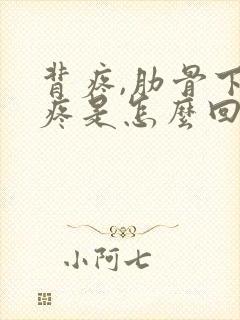 背疼,肋骨下
疼是怎麼回
小阿七